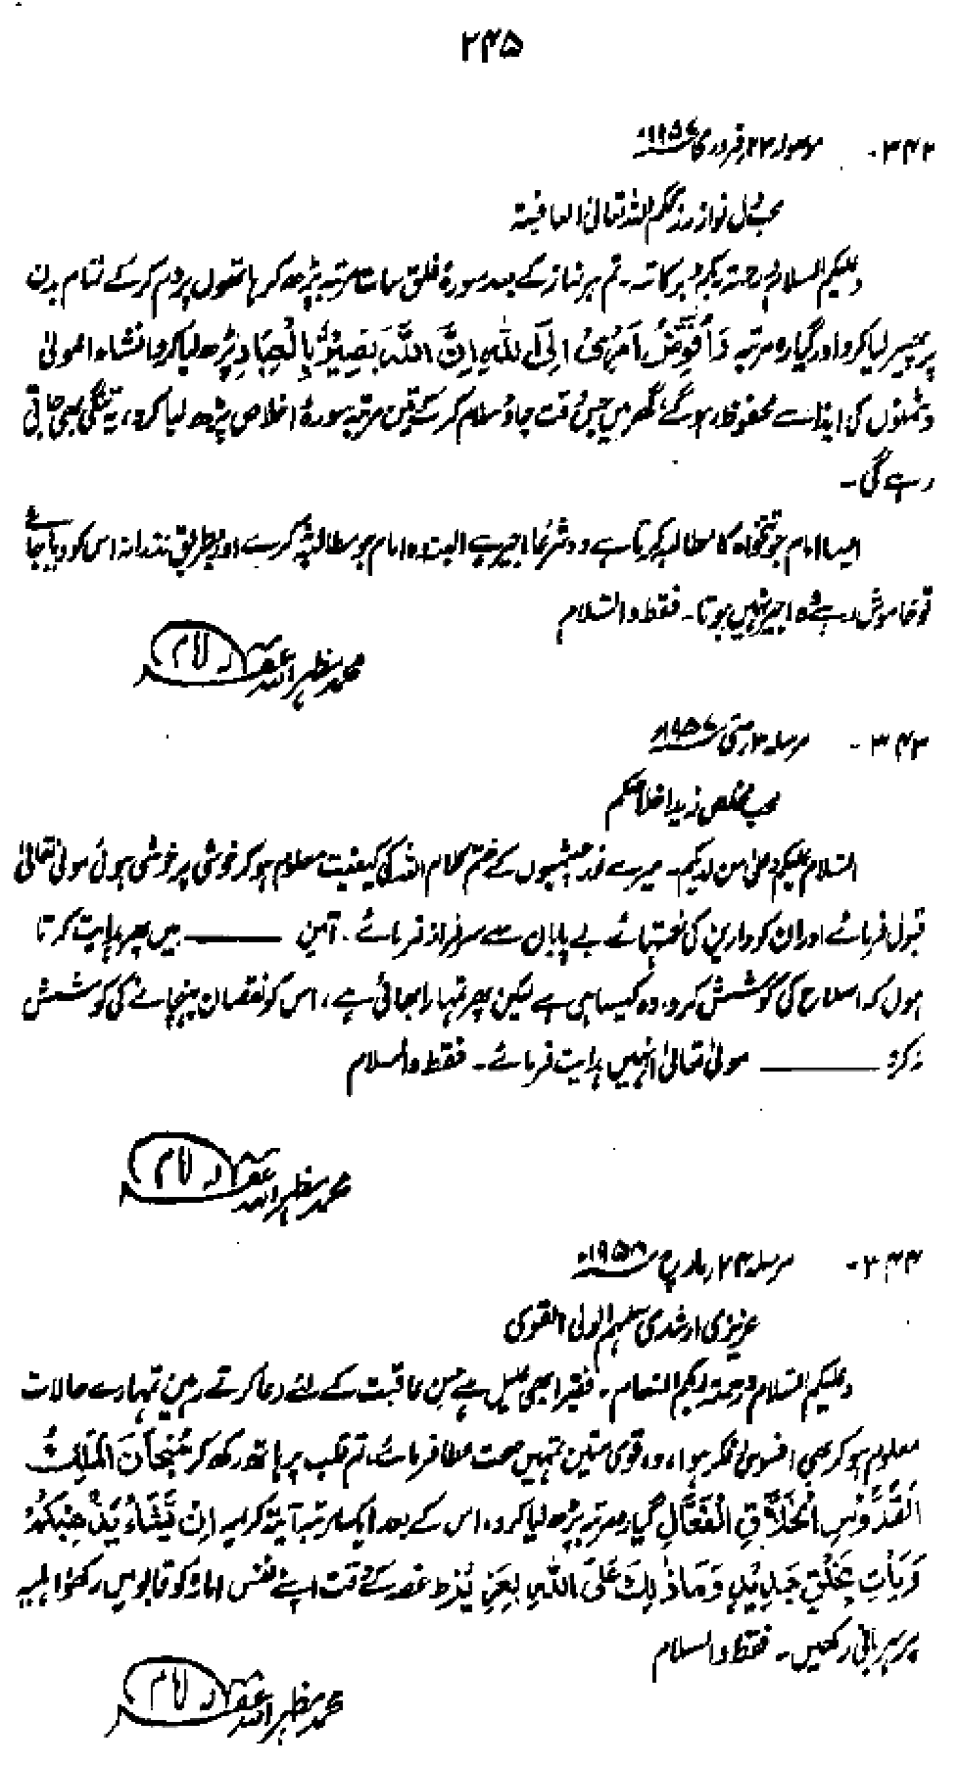 ۲۴۵
۳۴۲۔ ۲۲؍فروری ۱۹۵۷ء
محب دل نواز رزقکم اللہ تعالیٰ العافیۃ
وعلیکم السلام ورحمتہ ربکم وبرکاتہ۔ تم ہر نماز کے بعد سورۂ فلق سات مرتبہ پڑھ کر ہاتھوں پر دم کر کے تمام بدن
پر پھیر لیا کرو اور گیارہ مرتبہ وَاُفَوِّضُ اَمْرِیْ اِلَی اللہِ اِنَّ اللہَ بَصِیْرٌۢ بِالْعِبَادِ پڑھ لیا کرو انشاء المولیٰ
دشمنوں کی ایذا سے محفوظ رہو گے گھر میں جس وقت جاؤ سلام کر کے تین مرتبہ سورۂ اخلاص پڑھ لیا کرو، یہ تنگی بھی جاتی
رہے گی۔
ایسا امام جو تنخواہ کا مطالبہ کرتا ہے وہ شرعًا اجیر ہے البتہ وہ امام جو مطالبہ نہ کرے اور بطریق نذرانہ اس کو دیا جائے
تو خاموش رہے وہ اجیر نہیں ہوتا۔ فقط والسلام
محمد مظہر اللہ غفرلہ الامام
۳۴۳۔ مرسلہ ۳؍مئی ۱۹۵۷ء
محب مخلص زید اخلاصکم
السلام علیکم وعلیٰ من لدیکم۔ میرے نور چشموں کے ختم کلام اللہ کی کیفیت معلوم ہو کر خوشی پر خوشی ہوئی مولیٰ تعالیٰ
قبول فرمائے اور ان کو دارین کی نعمتہائے بے پایان سے سرفراز فرمائے۔ آمین ــــــــ میں پھر ہدایت کرتا
ہوں کہ اصلاح کی کوشش کرو، وہ کیسا ہی ہے لیکن پھر تمہارا بھائی ہے، اس کو نقصان پہنچانے کی کوشش
نہ کرنا ــــــــ مولیٰ تعالیٰ انہیں ہدایت فرمائے۔ فقط والسلام
محمد مظہر اللہ غفرلہ الامام
۳۴۴۔ مرسلہ ۲۴؍مارچ ۱۹۵۸ء
عزیزی ارشدی سلمہم الولی القوی
وعلیکم السلام ورحمۃ ربکم المنعام۔ فقیر ابھی علیل ہے حسن عاقبت کے لئے دعا کرتے رہیں تمہارے حالات
معلوم ہو کر بھی افسوس و فکر ہوا، وہ قوی متین تمہیں صحت عطا فرمائے، تم قلب پر ہاتھ رکھ کر سُبْحَانَ الْمَلِکِ
الْقُدُّوْسِ الْخَلَّاقِ الْفَعَّالِ گیارہ مرتبہ پڑھ لیا کرو، اس کے بعد ایک مرتبہ آیتہ کریمہ اِنْ یَّشَاْ یُذْھِبْکُمْ
وَیَأْتِ بِخَلْقٍ جَدِیْدٍ وَمَا ذٰلِکَ عَلَی اللہِ بِعَزِیْزٍ ط غصہ کے وقت اپنے نفس امارہ کو قابو میں رکھو، اہلیہ
پر مہربانی رکھیں۔ فقط والسلام
محمد مظہر اللہ غفرلہ الامام